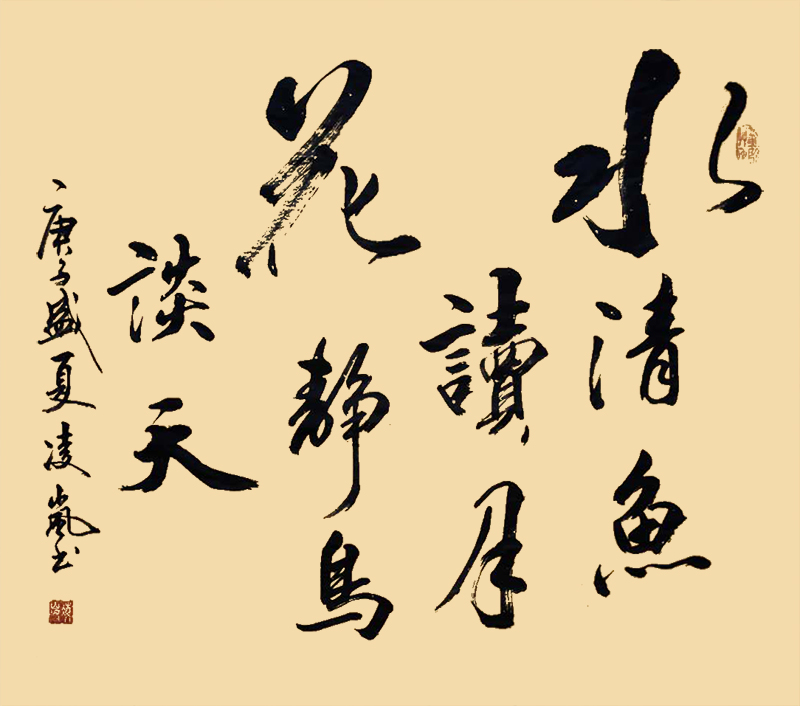 水清魚
讀月
花静鳥
談天
庚子盛夏凌嵐书